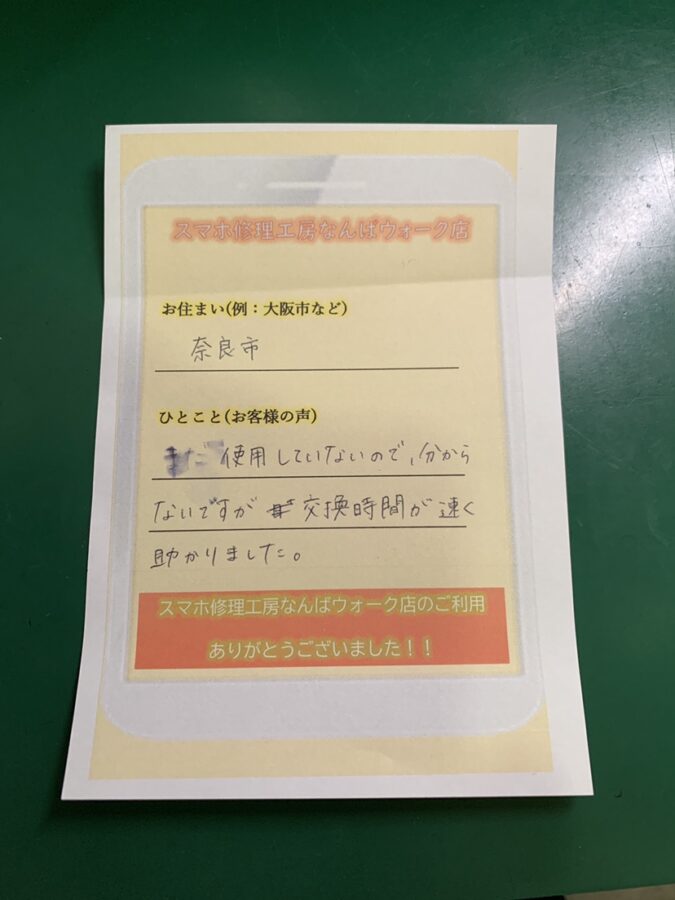 スマホ修理工房なんばウォーク店
お住まい(例：大阪市など)
奈良市
ひとこと(お客様の声)
まだ 使用していないので、分から
ないですが 交換時間が速く
助かりました。
スマホ修理工房なんばウォーク店のご利用
ありがとうございました！！